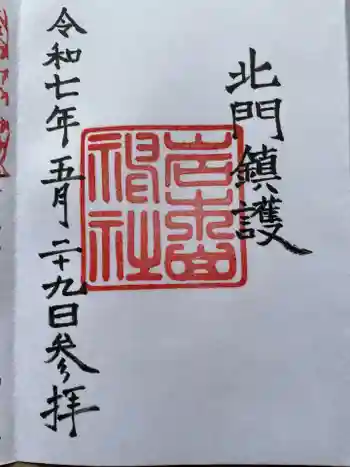 北門鎮護
岩木山
神社
令和七年五月二十九日参拝